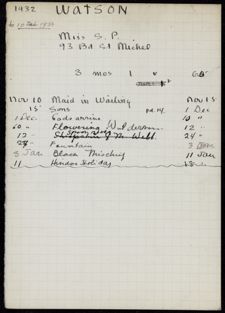 1932 WATSON
to 10 Feb 1933
Miss S. P.
93 Bd St Michel
3 mos 1 v 60
Nov 10 Maid in Waiting Nov 15
15 Sons 1 Dec
1 Dec Gods arrive 10 "
10 " Flowering Wilderness 12 "
12 " 24 "
24 " Fountain 3 Jan
3 Jan Black Mischief 11 Jan
11 Hindoo Holiday